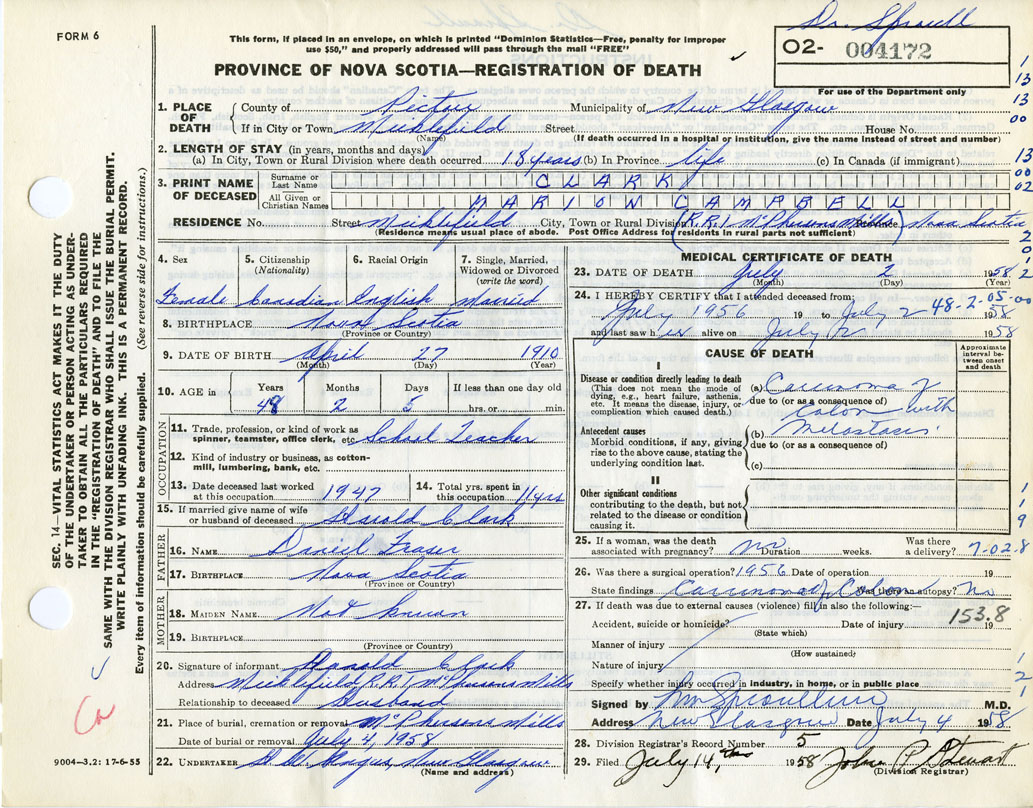 Dr. Sproull
FORM 6
This form, if placed in an envelope, on which is printed "Dominion Statistics—Free, penalty for improper
use $50," and properly addressed will pass through the mail "FREE"
02- 004172
PROVINCE OF NOVA SCOTIA—REGISTRATION OF DEATH
For use of the Department only
1. PLACE OF DEATH
County of Pictou Municipality of New Glasgow
If in City or Town Micklefield Street House No.
(Name) (If death occurred in a hospital or institution, give the name instead of street and number)
2. LENGTH OF STAY (in years, months and days)
(a) In City, Town or Rural Division where death occurred 18 years (b) In Province life (c) In Canada (if immigrant)
3. PRINT NAME OF DECEASED
Surname or Last Name CLARK
All Given or Christian Names MARION CAMPBELL
RESIDENCE No. Street Micklefield City, Town or Rural Division R.R.1 McPhersons Mills Province Nova Scotia
(Residence means usual place of abode. Post Office Address for residents in rural parts not sufficient)
4. Sex
Female
5. Citizenship
(Nationality)
Canadian
6. Racial Origin
English
7. Single, Married,
Widowed or Divorced
(write the word)
Married
8. BIRTHPLACE Nova Scotia
(Province or Country)
9. DATE OF BIRTH April 27 1910
(Month) (Day) (Year)
10. AGE in
Years Months Days If less than one day old
48 2 5 hrs. or min.
OCCUPATION
11. Trade, profession, or kind of work as
spinner, teamster, office clerk, etc. School Teacher
12. Kind of industry or business, as cotton-
mill, lumbering, bank, etc.
13. Date deceased last worked
at this occupation 1947
14. Total yrs. spent in
this occupation 11 yrs
15. If married give name of wife
or husband of deceased Harold Clark
FATHER
16. NAME Daniel Fraser
17. BIRTHPLACE Nova Scotia
(Province or Country)
MOTHER
18. MAIDEN NAME Not known
19. BIRTHPLACE
(Province or Country)
20. Signature of informant Harold Clark
Address Micklefield R.R.1 McPhersons Mills
Relationship to deceased Husband
21. Place of burial, cremation or removal McPhersons Mills
Date of burial or removal July 4, 1958
22. UNDERTAKER Angus, New Glasgow
(Name and address)
MEDICAL CERTIFICATE OF DEATH
23. DATE OF DEATH July 2 1958
(Month) (Day) (Year)
24. I HEREBY CERTIFY that I attended deceased from:
July 1956 19 to July 2 1958
48-2-05-00
and last saw her alive on July 2 1958
CAUSE OF DEATH
Approximate
interval be-
tween onset
and death
I
Disease or condition directly leading to death
(This does not mean the mode of
dying, e.g., heart failure, asthenia,
etc. It means the disease, injury, or
complication which caused death.)
(a) Carcinoma of
due to (or as a consequence of)
Colon with
Antecedent causes
Morbid conditions, if any, giving
rise to the above cause, stating the
underlying condition last.
(b) Metastasis
due to (or as a consequence of)
(c)
II
Other significant conditions
contributing to the death, but not
related to the disease or condition
causing it.
25. If a woman, was the death
associated with pregnancy? no Duration weeks.
Was there
a delivery?
7-02.8
26. Was there a surgical operation? 1956 Date of operation 19
State findings Carcinoma of Colon Was there an autopsy? No
27. If death was due to external causes (violence) fill in also the following:—
Accident, suicide or homicide? Date of injury 19
(State which)
153.8
Manner of injury
(How sustained)
Nature of injury
Specify whether injury occurred in industry, in home, or in public place
Signed by M.D.
Address New Glasgow Date July 4 1958
28. Division Registrar's Record Number 5
29. Filed July 14, 1958 John P. Stewart
(Division Registrar)
SEC. 14—VITAL STATISTICS ACT MAKES IT THE DUTY
OF THE UNDERTAKER OR PERSON ACTING AS UNDER-
TAKER TO OBTAIN ALL THE PARTICULARS REQUIRED
IN THE "REGISTRATION OF DEATH" AND TO FILE THE
SAME WITH THE DIVISION REGISTRAR WHO SHALL ISSUE THE BURIAL PERMIT.
WRITE PLAINLY WITH UNFADING INK. THIS IS A PERMANENT RECORD.
Every item of information should be carefully supplied. (See reverse side for instructions.)
Ca
9004—3.2: 17-6-55
1
13
13
00
13
00
02
2
0
1
2
1
1
9
1
2
1